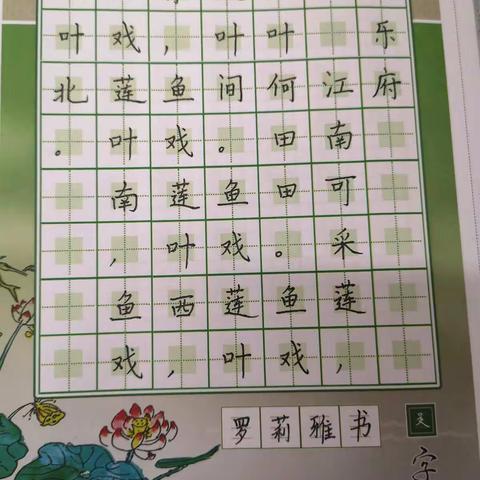 乐府
江南可采莲，
叶何田田。鱼戏
叶间。鱼戏莲叶
，鱼戏莲叶西，
戏莲叶南，鱼戏
叶北。
罗莉雅书
字